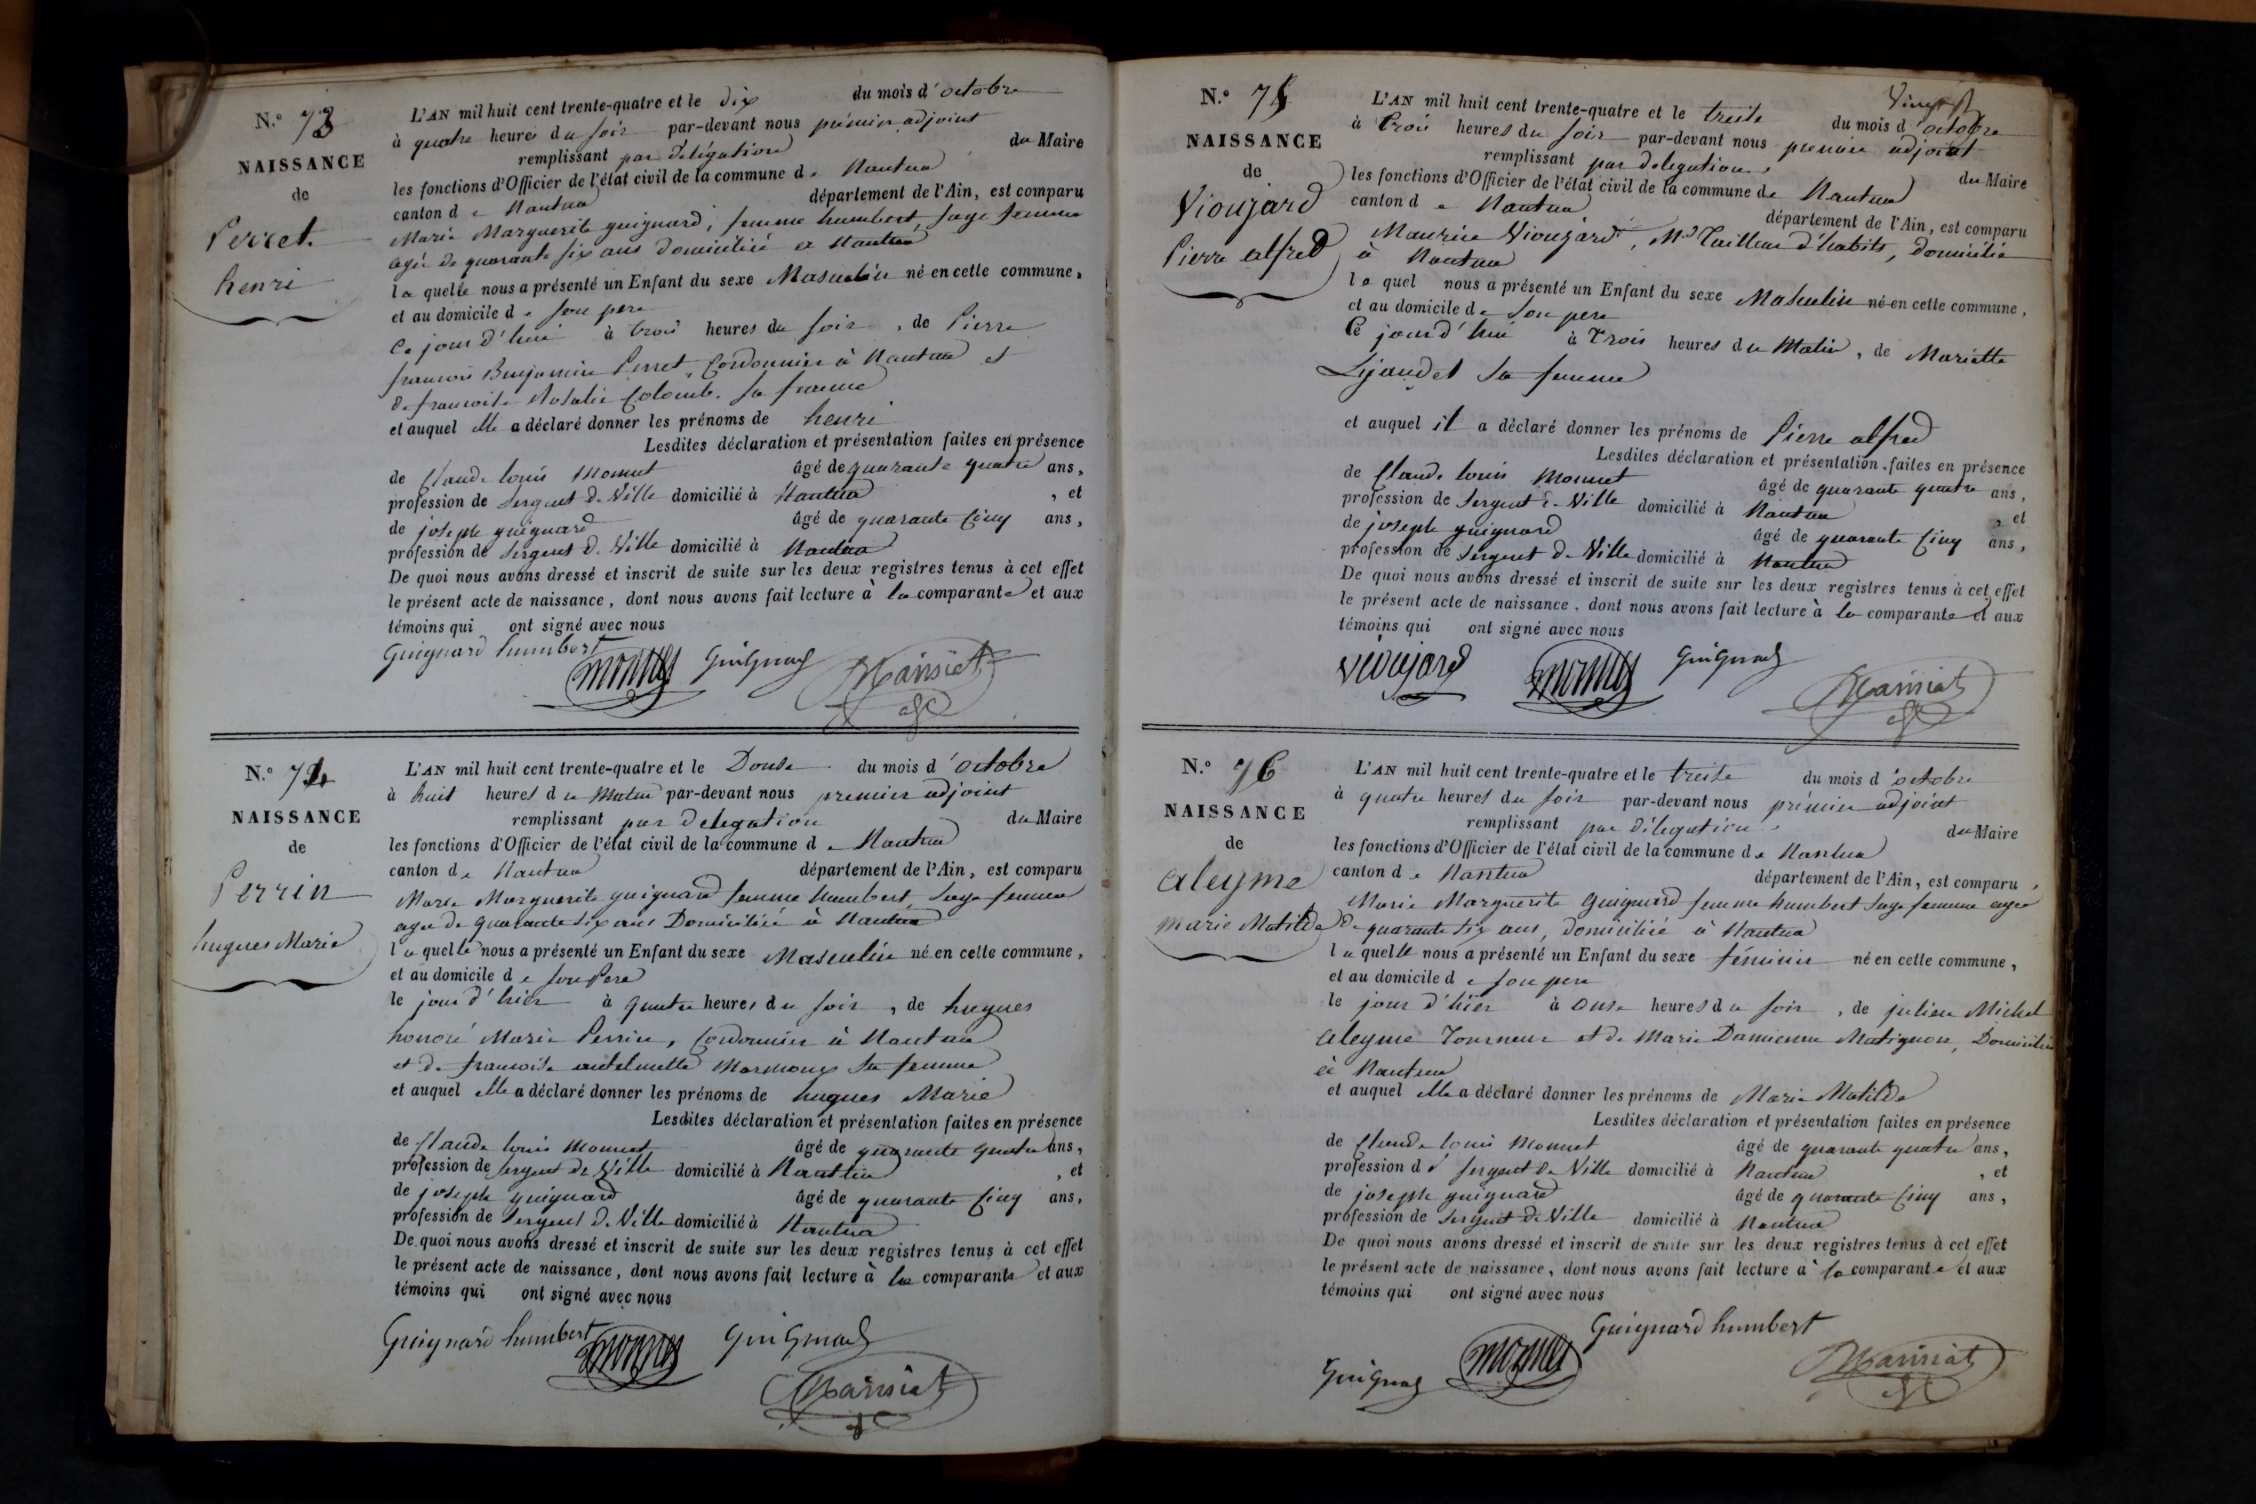 N.° 73
NAISSANCE
de
Perret
henri
L'AN mil huit cent trente-quatre et le dix du mois d'octobre
à quatre heures du soir par-devant nous prémier adjoint
remplissant par délégation du Maire
les fonctions d'Officier de l'état civil de la commune de Nantua
canton de Nantua département de l'Ain, est comparu
Marie Marguerite guignard, femme humbert, sage femme
agée de quarante six ans domiciliée à Nantua
laquelle nous a présenté un Enfant du sexe Masculin né en cette commune,
et au domicile de son pere
Ce jour d'hui à trois heures du soir, de Pierre
francois Benjamin Perret, Cordonnier à Nantua et
de francoise Rosalie Colomb, sa femme
et auquel elle a déclaré donner les prénoms de henri
Lesdites déclaration et présentation faites en présence
de Claude louis Monnet âgé de quarante quatre ans,
profession de Sergent de Ville domicilié à Nantua, et
de joseph guignard âgé de quarante Cinq ans,
profession de Sergent de Ville domicilié à Nantua
De quoi nous avons dressé et inscrit de suite sur les deux registres tenus à cet effet
le présent acte de naissance, dont nous avons fait lecture à la comparante et aux
témoins qui ont signé avec nous
Guignard humbert monnet Guignard Mansiat
N.° 74
NAISSANCE
de
Perrin
hugues Marie
L'AN mil huit cent trente-quatre et le Douse du mois d'octobre
à huit heures du Matin par-devant nous premier adjoint
remplissant par délégation du Maire
les fonctions d'Officier de l'état civil de la commune de Nantua
canton de Nantua département de l'Ain, est comparu
Marie Marguerite guignard femme humbert, sage femme
agée de quarante six ans Domiciliée à Nantua
laquelle nous a présenté un Enfant du sexe Masculin né en cette commune,
et au domicile de son Pere
le jour d'hier à quatre heures du soir, de hugues
honoré Marie Perrin, Cordonnier à Nantua
et de francoise antelmette Marmoug sa femme
et auquel elle a déclaré donner les prénoms de hugues Marie
Lesdites déclaration et présentation faites en présence
de Claude louis Monnet âgé de quarante quatre ans,
profession de Sergent de Ville domicilié à Nantua, et
de joseph guignard âgé de quarante Cinq ans,
profession de Sergent de Ville domicilié à Nantua
De quoi nous avons dressé et inscrit de suite sur les deux registres tenus à cet effet
le présent acte de naissance, dont nous avons fait lecture à la comparante et aux
témoins qui ont signé avec nous
Guignard humbert monnet Guignard
Mansiat
N.° 75
NAISSANCE
de
Vioujard
Pierre alfred
L'AN mil huit cent trente-quatre et le treise du mois d'octobre
à trois heures du soir par-devant nous premier adjoint
remplissant par délégation du Maire
les fonctions d'Officier de l'état civil de la commune de Nantua
canton de Nantua département de l'Ain, est comparu
Maurice Vioujard, Md Tailleur d'habits, domicilié
à Nantua
lequel nous a présenté un Enfant du sexe Masculin né en cette commune,
et au domicile de son pere
Ce jour d'hui à Trois heures du Matin, de Mariette
Lijandet sa femme
et auquel il a déclaré donner les prénoms de Pierre alfred
Lesdites déclaration et présentation faites en présence
de Claude louis Monnet âgé de quarante quatre ans,
profession de Sergent de Ville domicilié à Nantua, et
de joseph guignard âgé de quarante Cinq ans,
profession de Sergent de Ville domicilié à Nantua
De quoi nous avons dressé et inscrit de suite sur les deux registres tenus à cet effet
le présent acte de naissance, dont nous avons fait lecture à le comparante et aux
témoins qui ont signé avec nous
Vioujard monnet Guignard Mansiat
N.° 76
NAISSANCE
de
aleyme
marie Matilde
L'AN mil huit cent trente-quatre et le treise du mois d'octobre
à quatre heures du soir par-devant nous prémier adjoint
remplissant par délégation du Maire
les fonctions d'Officier de l'état civil de la commune de Nantua
canton de Nantua département de l'Ain, est comparu
Marie Marguerite Guignard femme humbert sage femme agée
de quarante six ans, domiciliée à Nantua
laquelle nous a présenté un Enfant du sexe féminin né en cette commune,
et au domicile de son pere
le jour d'hier à onse heures du soir, de julien Michel
aleyme Tourneur et de Marie Damienne Matignon, Domiciliés
à Nantua
et auquel elle a déclaré donner les prénoms de Marie Matilde
Lesdites déclaration et présentation faites en présence
de Claude louis Monnet âgé de quarante quatre ans,
profession de Sergent de Ville domicilié à Nantua, et
de joseph guignard âgé de quarante Cinq ans,
profession de Sergent de Ville domicilié à Nantua
De quoi nous avons dressé et inscrit de suite sur les deux registres tenus à cet effet
le présent acte de naissance, dont nous avons fait lecture à la comparante et aux
témoins qui ont signé avec nous
Guignard humbert
Guignard monnet Mansiat